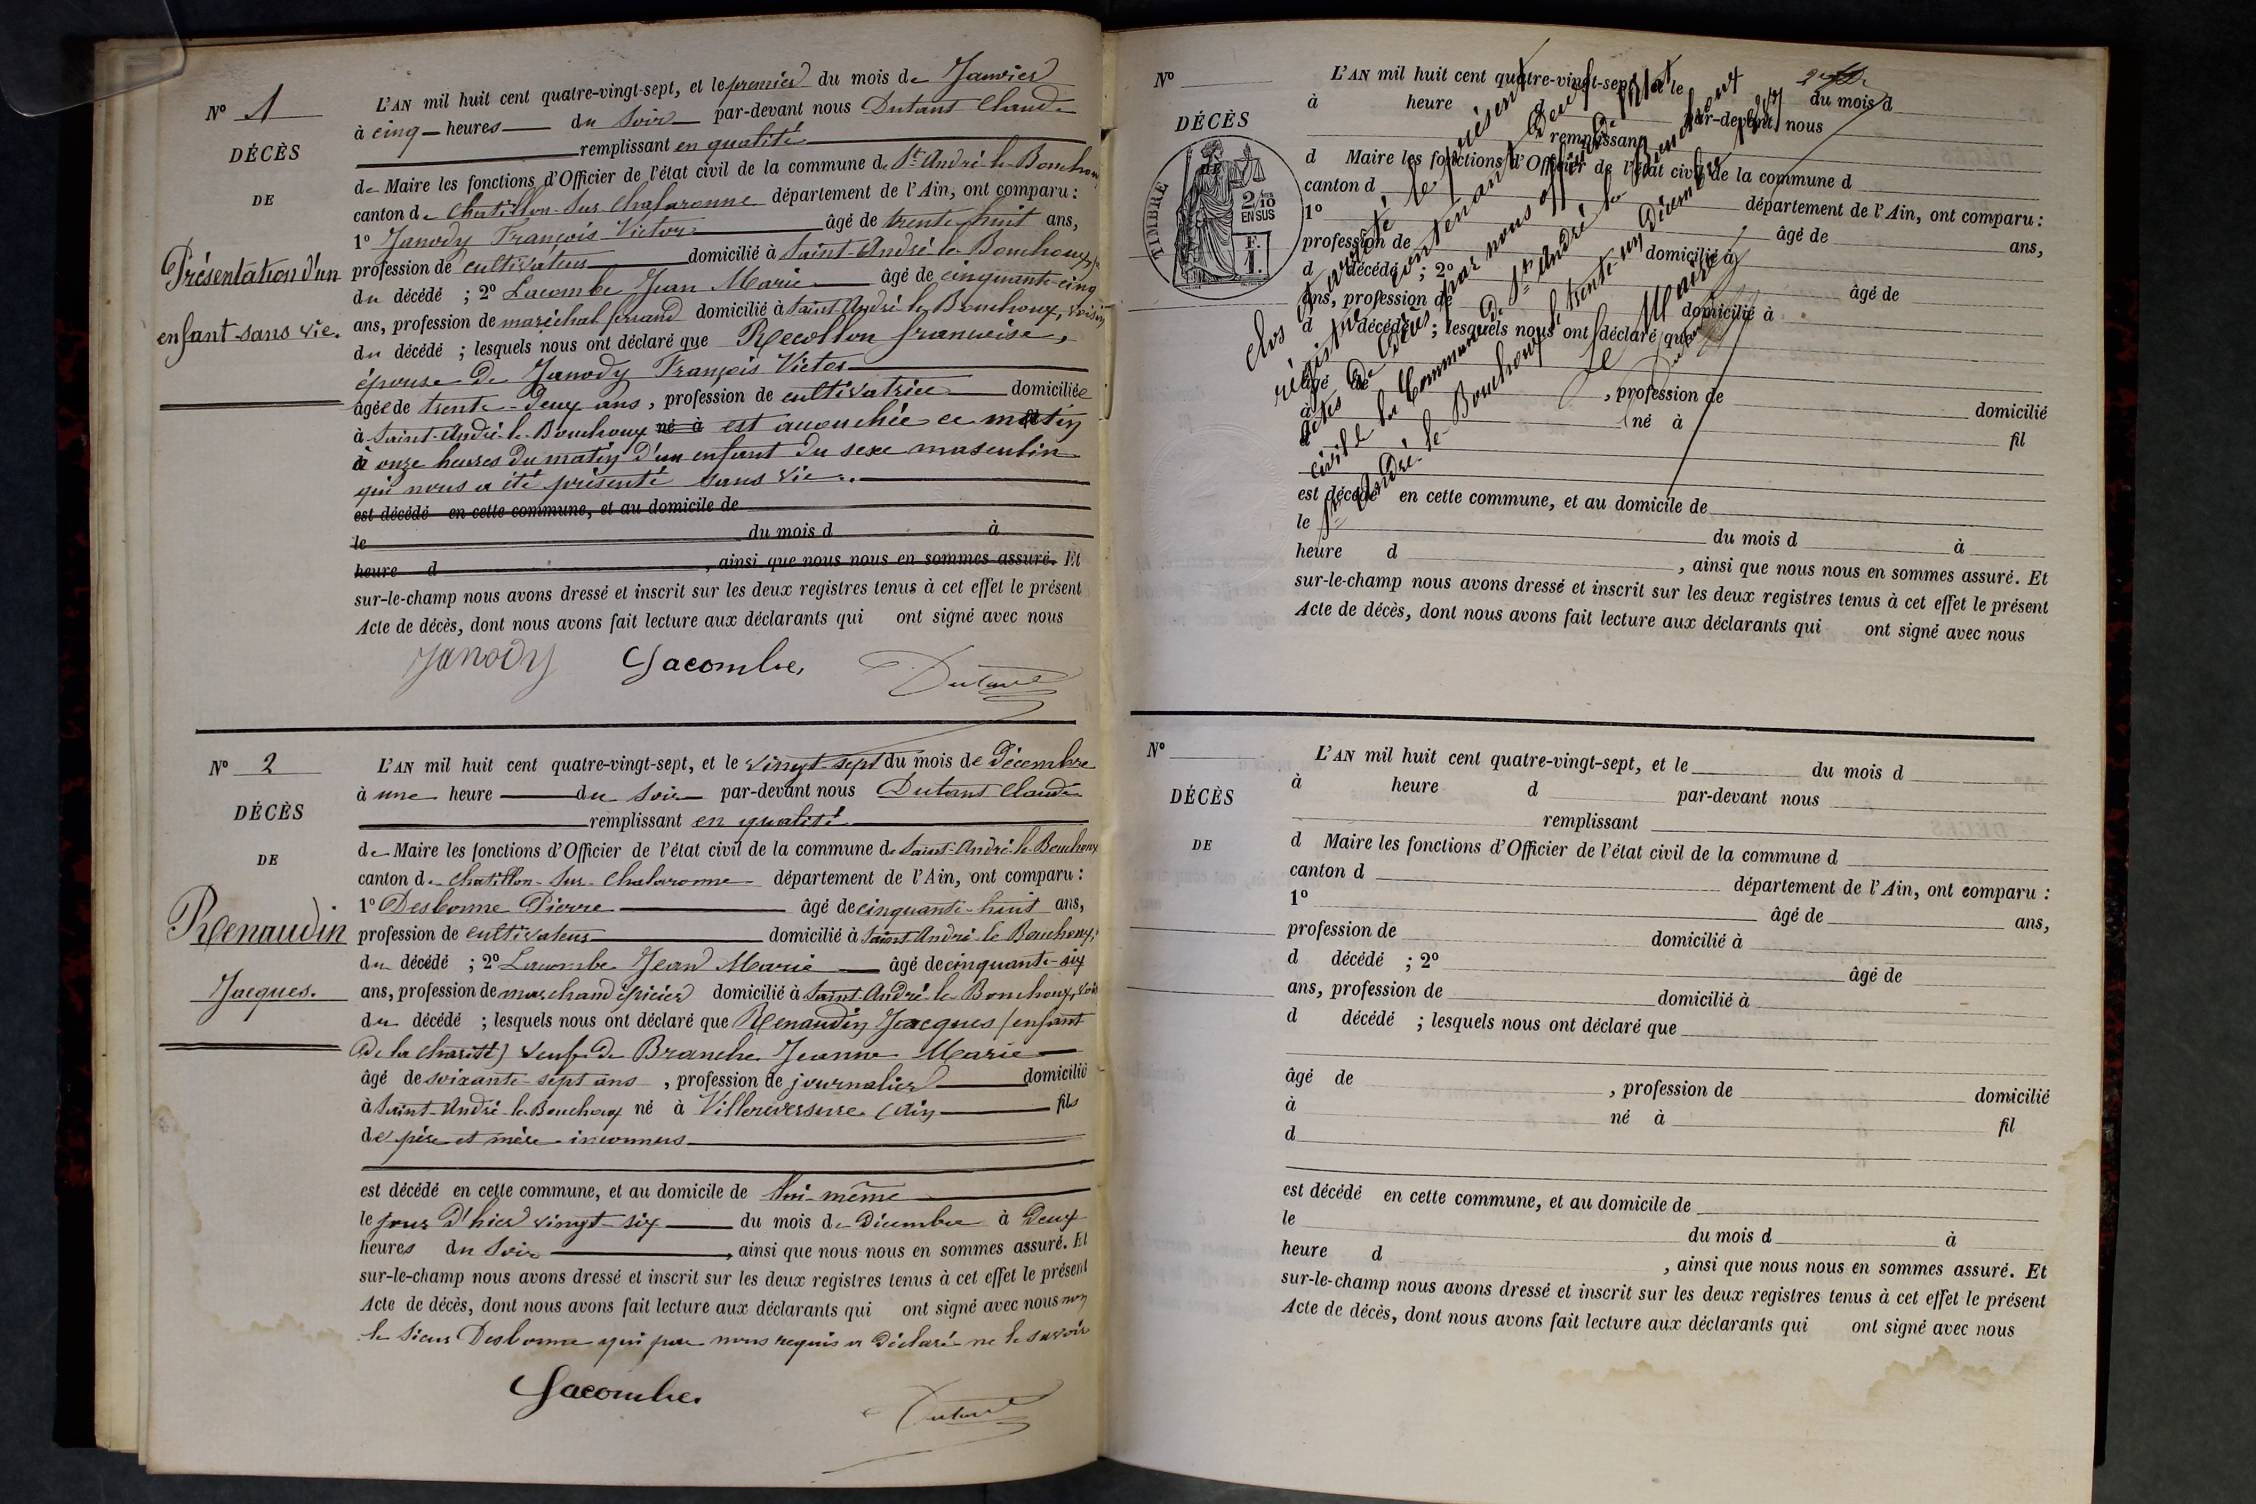 N° 1
DÉCÈS
DE
Présentation d'un
enfant sans vie.
L'AN mil huit cent quatre-vingt-sept, et le premier du mois de Janvier
à cinq heures du Soir par-devant nous Dutant Claude
remplissant en qualité
de Maire les fonctions d'Officier de l'état civil de la commune de St André le Bouchoux
canton de Chatillon-Sur-Chalaronne département de l'Ain, ont comparu :
1° Janody François Victor âgé de trente-huit ans,
profession de cultivateur domicilié à Saint-André-le-Bouchoux,
du décédé ; 2° Lacombe Jean Marie âgé de cinquante-cinq
ans, profession de maréchal ferrand domicilié à Saint André le Bouchoux, voisin
du décédé ; lesquels nous ont déclaré que Recollon françoise,
épouse de Janody François Victor
âgée de trente-deux ans, profession de cultivatrice domiciliée
à Saint-André-le-Bouchoux né à est accouchée ce matin
à onze heures du matin d'un enfant du sexe masculin
qui nous a été présenté sans vie.
est décédé en cette commune, et au domicile de
le du mois d à
heure d , ainsi que nous nous en sommes assuré. Et
sur-le-champ nous avons dressé et inscrit sur les deux registres tenus à cet effet le présent
Acte de décès, dont nous avons fait lecture aux déclarants qui ont signé avec nous
Janody Lacombe Dutant
N° 2
DÉCÈS
DE
Renaudin
Jacques.
L'AN mil huit cent quatre-vingt-sept, et le vingt-sept du mois de Décembre
à une heure du Soir par-devant nous Dutant Claude
remplissant en qualité
de Maire les fonctions d'Officier de l'état civil de la commune de Saint-André-le-Bouchoux
canton de Chatillon-Sur-Chalaronne département de l'Ain, ont comparu :
1° Desbonne Pierre âgé de cinquante-huit ans,
profession de cultivateur domicilié à Saint André-le-Bouchoux,
du décédé ; 2° Lacombe Jean Marie âgé de cinquante-six
ans, profession de marchand épicier domicilié à Saint-André-le-Bouchoux, voisin
du décédé ; lesquels nous ont déclaré que Renaudin Jacques (enfant
de la charité) veuf de Branche Jeanne Marie
âgé de soixante-sept ans, profession de journalier domicilié
à Saint-André-le-Bouchoux né à Villereversure (Ain fils
de père et mère inconnus
est décédé en cette commune, et au domicile de lui-même
le jour d'hier vingt-six du mois de Décembre à Deux
heures du Soir, ainsi que nous nous en sommes assuré. Et
sur-le-champ nous avons dressé et inscrit sur les deux registres tenus à cet effet le présent
Acte de décès, dont nous avons fait lecture aux déclarants qui ont signé avec nous non
le sieur Desbonne qui par nous requis a déclaré ne le savoir
Lacombe Dutant
N°
DÉCÈS
TIMBRE
2/10
EN SUS
F.
1.
L'AN mil huit cent quatre-vingt-sept, et le du mois d
à heure d par-devant nous
remplissant
d Maire les fonctions d'Officier de l'état civil de la commune d
canton d département de l'Ain, ont comparu :
1° âgé de ans,
profession de domicilié à
d décédé ; 2° âgé de
ans, profession de domicilié à
d décédé ; lesquels nous ont déclaré que
âgé de , profession de domicilié
à né à fil
d
est décédé en cette commune, et au domicile de
le du mois d à
heure d , ainsi que nous nous en sommes assuré. Et
sur-le-champ nous avons dressé et inscrit sur les deux registres tenus à cet effet le présent
Acte de décès, dont nous avons fait lecture aux déclarants qui ont signé avec nous
Clos et arrêté le présent
registre contenant Deux
actes de Décès par nous officier de l'état
civil de la commune de St André le Bouchoux
St André-le-Bouchoux le trente-un Décembre
Le Maire
N°
DÉCÈS
DE
L'AN mil huit cent quatre-vingt-sept, et le du mois d
à heure d par-devant nous
remplissant
d Maire les fonctions d'Officier de l'état civil de la commune d
canton d département de l'Ain, ont comparu :
1° âgé de ans,
profession de domicilié à
d décédé ; 2° âgé de
ans, profession de domicilié à
d décédé ; lesquels nous ont déclaré que
âgé de , profession de domicilié
à né à fil
d
est décédé en cette commune, et au domicile de
le du mois d à
heure d , ainsi que nous nous en sommes assuré. Et
sur-le-champ nous avons dressé et inscrit sur les deux registres tenus à cet effet le présent
Acte de décès, dont nous avons fait lecture aux déclarants qui ont signé avec nous